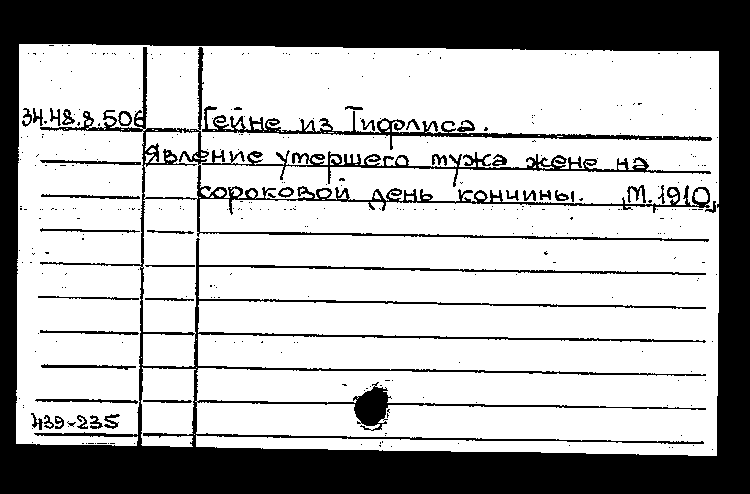 34.48.8.506 Гейне из Тифлиса.
Явление умершего мужа жене на
сороковой день кончины. М., 1910.
439-235